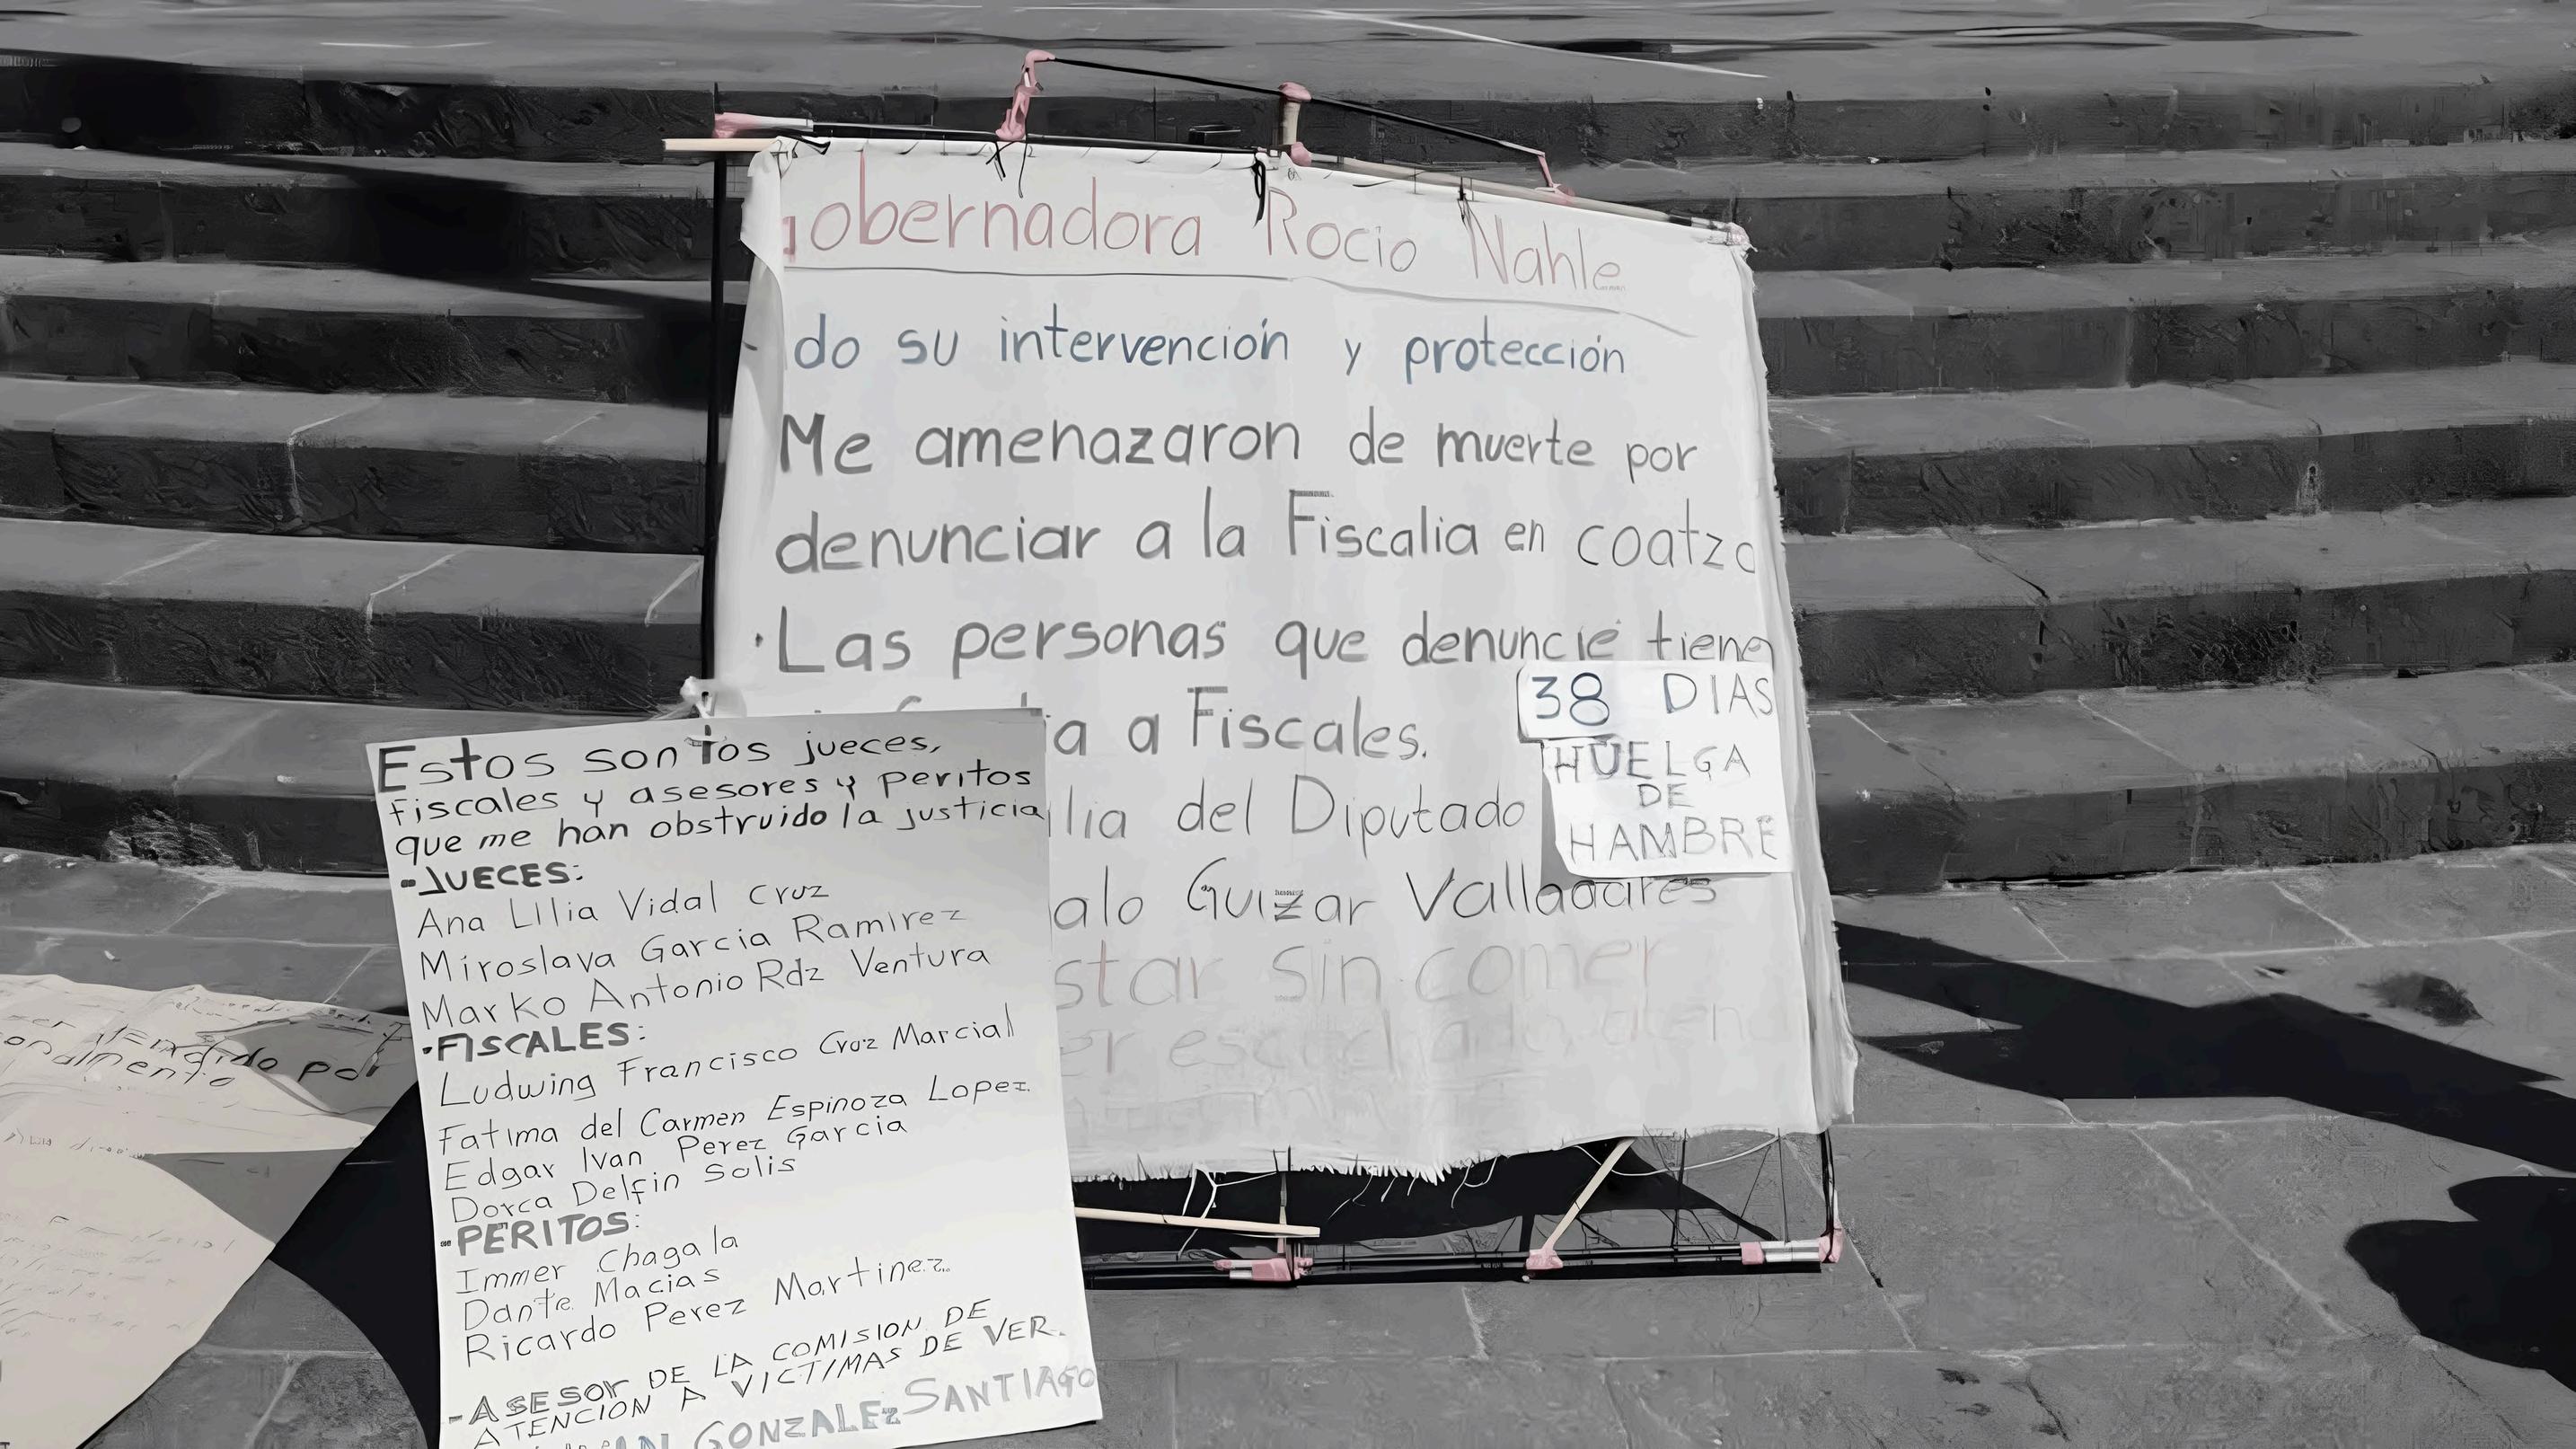 gobernadora Rocio Nahle
do su intervención y protección
Me amenazaron de muerte por
denunciar a la Fiscalia en coatza
·Las personas que denuncié tienen
a a Fiscales.
38 DIAS
HUELGA
DE
HAMBRE
lia del Diputado
alo Guizar Valladares
star sin comer
er escuchado
Estos son los jueces,
fiscales y asesores y peritos
que me han obstruido la justicia
-JUECES:
Ana Lilia Vidal Cruz
Miroslava Garcia Ramirez
Marko Antonio Rdz Ventura
·FISCALES:
Ludwing Francisco Cruz Marcial
Fatima del Carmen Espinoza Lopez
Edgar Ivan Perez Garcia
Dorca Delfin Solis
-PERITOS:
Immer Chagala
Dante Macias
Ricardo Perez Martinez
-ASESOR DE LA COMISION DE
ATENCION A VICTIMAS DE VER.
GONZALEZ SANTIAGO